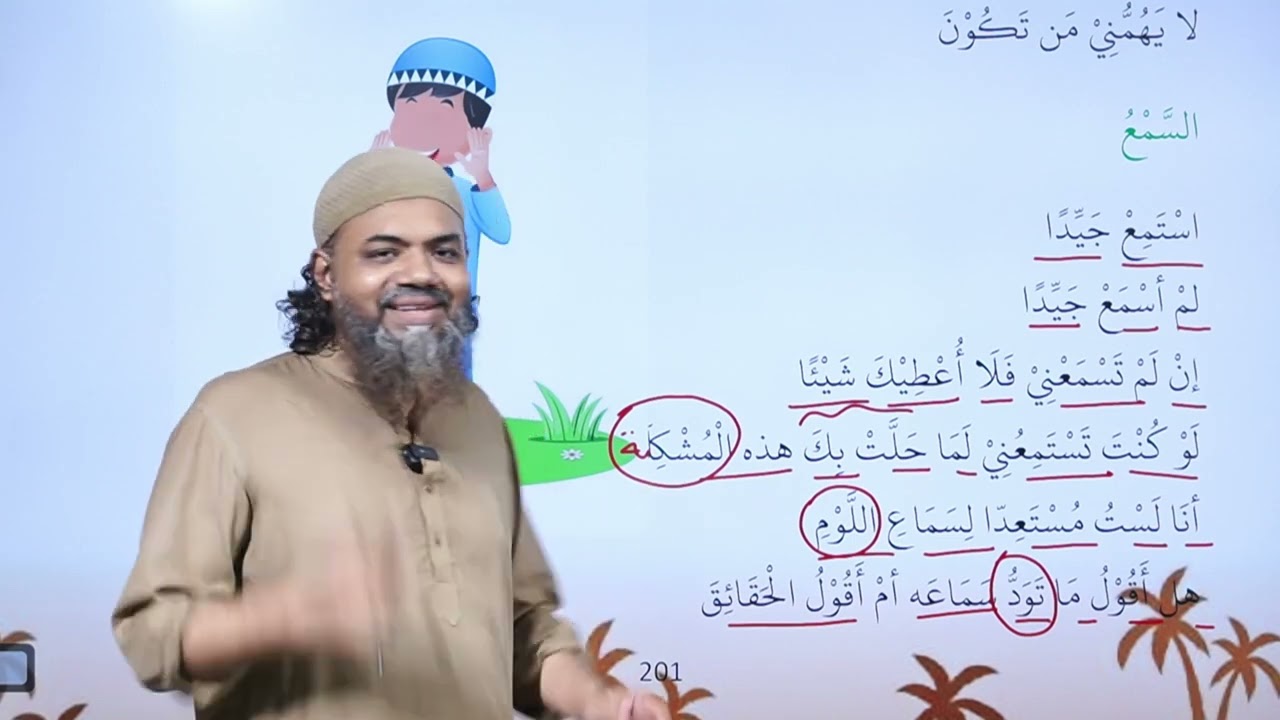 لا يَهُمُّنِيْ مَن تَكُوْنَ
السَّمْعُ
اسْتَمِعْ جَيِّدًا
لَمْ أسْمَعْ جَيِّدًا
إنْ لَمْ تَسْمَعْنِيْ فَلَا أُعْطِيْكَ شَيْئًا
لَوْ كُنْتَ تَسْتَمِعُنِيْ لَمَا حَلَّتْ بِكَ هذه الْمُشْكِلَة
أنَا لَسْتُ مُسْتَعِدّا لِسَمَاعِ اللَّوْمِ
هل أَقُوْلُ مَا تَوَدُّ سَمَاعَه أمْ أَقُوْلُ الْحَقَائِقَ
201